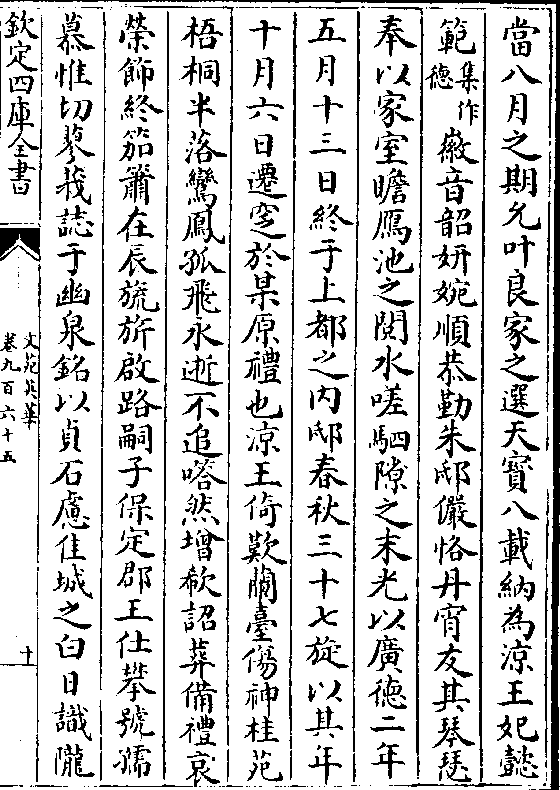 當八月之期允叶良家之選天寳八載納為涼王妃懿
範集作德徽音韶妍婉順恭勤朱邸儼恪丹宵友其琴瑟
奉以家室瞻鴈池之閱水嗟駟隙之末光以廣德二年
五月十三日終于上都之内邸春秋三十七旋以其年
十月六日遷窆於某原禮也涼王倚歎蘭臺傷神桂苑
梧桐半落鸞鳳孤飛永逝不追嗒然增欷詔葬備禮哀
榮飾終笳簫在辰旒旂啟路嗣子保定郡王仕攀號孺
慕惟切蓼莪誌于幽泉銘以貞石慮佳城之白日識隴
欽定四庫全書
文苑英華
卷九百六十五
十